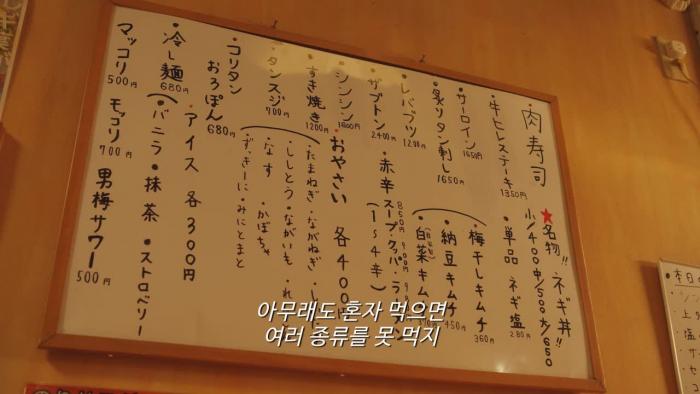 ・肉寿司
・牛ヒレステーキ 1350円
・サーロイン 1650円
・炙りタン刺し 1650
・レバブツ 1200円
・ザブトン 2400円
・シンシン 1800円
・すき焼き 1200円
・タンスジ 700円
・コリタン
おろぽん 680円
・冷し麺 680円
マッコリ 500円
★名物!! ネギ丼!!
小/400 中/500 大/650
・単品 ネギ塩 280円
・梅干しキムチ 360円
・納豆キムチ 450円
・白菜キム
・赤辛スープ・クッパ・ラーメン
850円 900円
(1~4辛)
・おやさい 各400円
・たまねぎ・ながねぎ・し
・ししとう・ながいも・れ
・なす・かぼちゃ
・ずっきーに・みにとまと
・アイス 各300円
・バニラ・抹茶・ストロベリー
モッコリ 700円
男梅サワー 500円
■本日
아무래도 혼자 먹으면
여러 종류를 못 먹지